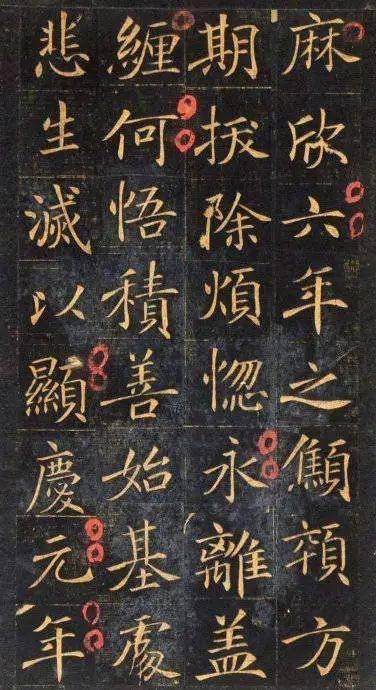 麻欣六年之顦顇方
期拔除煩惚永離盖
纏何悟積善始基處
悲生滅以顯慶元年